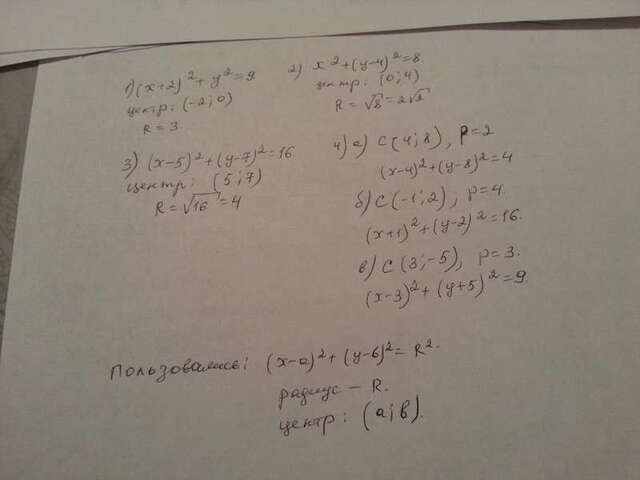 1) (x+2)² + y² = 9
центр: (-2; 0)
R = 3
2) x² + (y-4)² = 8
центр: (0; 4)
R = √8 = 2√2
3) (x-5)² + (y-7)² = 16
центр: (5; 7)
R = √16 = 4
4) а) C(4; 8), P=2
(x-4)² + (y-8)² = 4
б) C(-1; 2), p=4.
(x+1)² + (y-2)² = 16.
в) C(3; -5), p=3.
(x-3)² + (y+5)² = 9.
Пользовались: (x-a)² + (y-b)² = R².
радиус – R.
центр: (a; b).